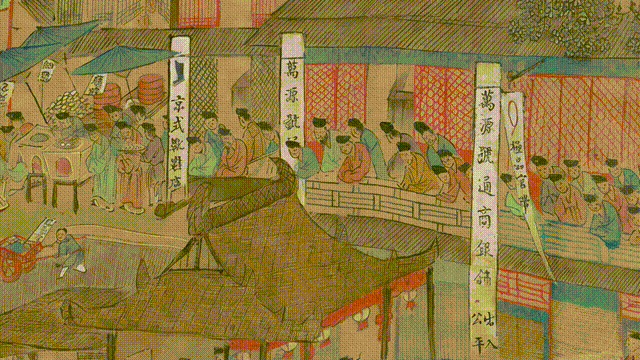 極品官帶
萬源號通商銀鋪
出入
公平
萬源號
京式靴鞋店